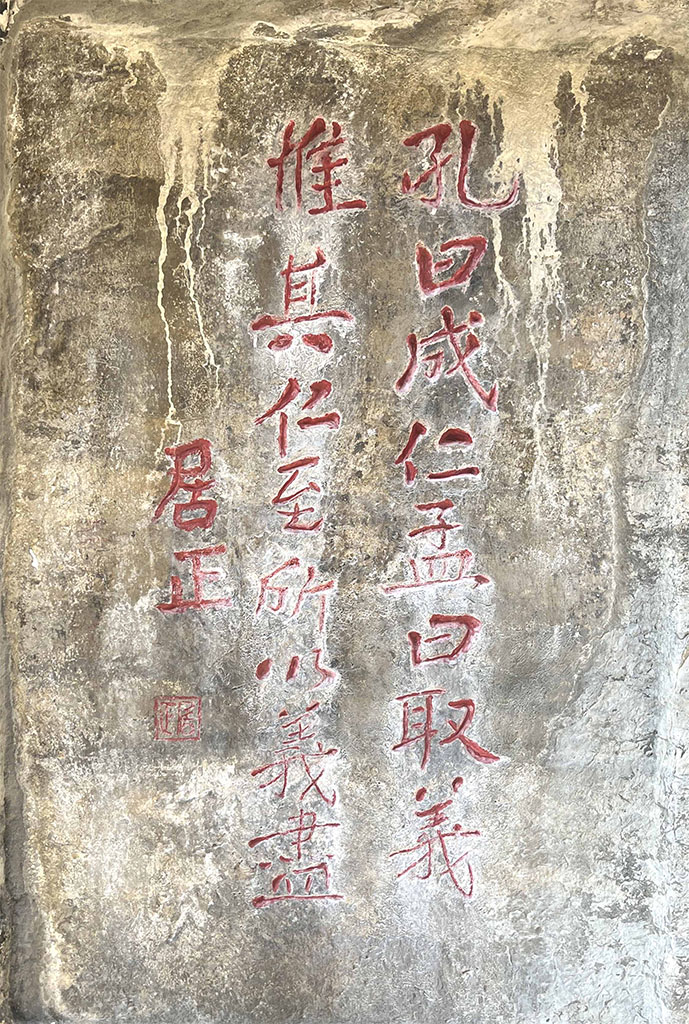 孔曰成仁孟曰取義
惟其仁至所以義盡
居正
居正